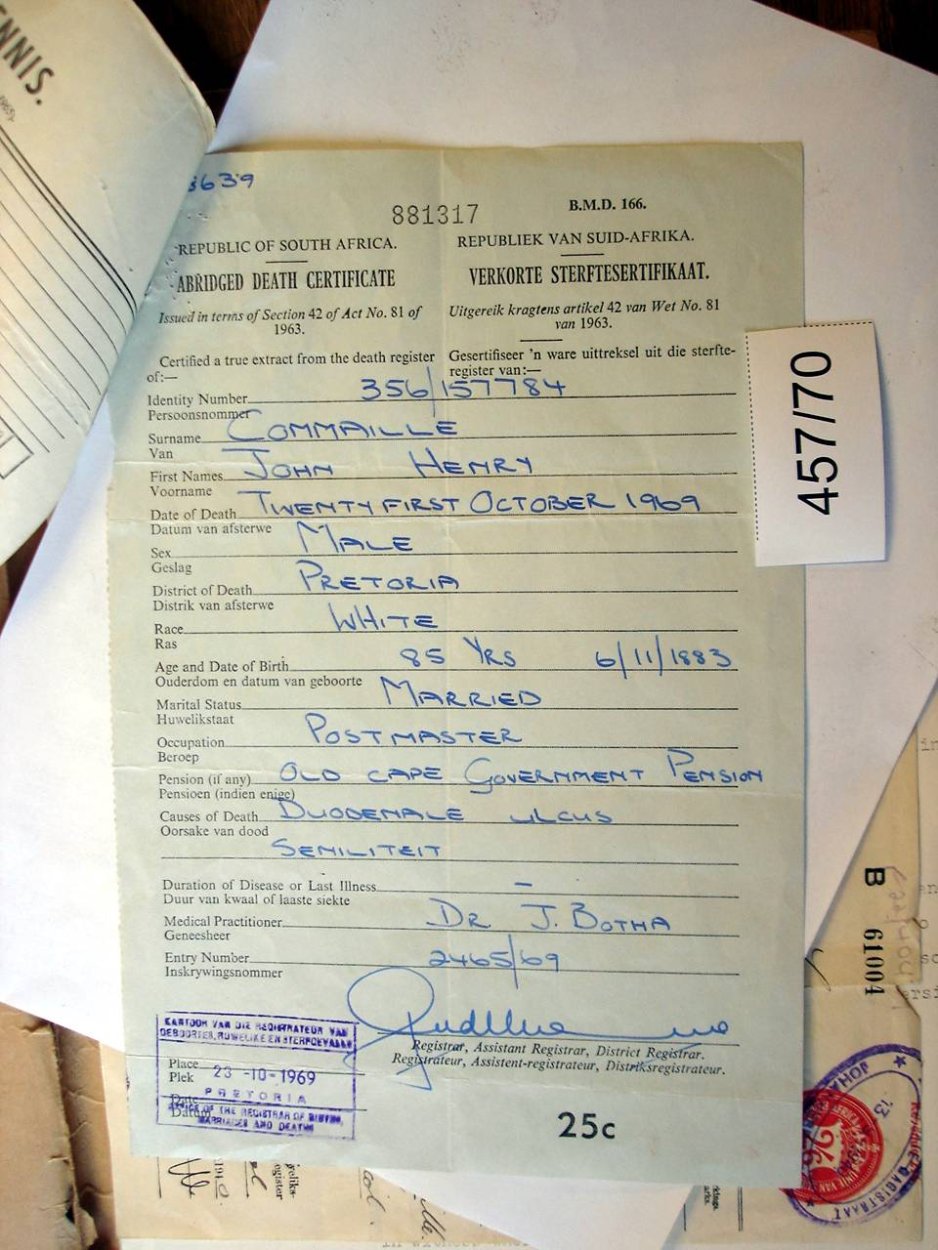 ENNIS.
3639
881317
B.M.D. 166.
REPUBLIC OF SOUTH AFRICA.
REPUBLIEK VAN SUID-AFRIKA.
ABRIDGED DEATH CERTIFICATE
VERKORTE STERFTESERTIFIKAAT.
Issued in terms of Section 42 of Act No. 81 of
1963.
Uitgereik kragtens artikel 42 van Wet No. 81
van 1963.
Certified a true extract from the death register
of:—
Gesertifiseer 'n ware uittreksel uit die sterfte-
register van:—
Identity Number 356/157784
Persoonsnommer
Surname COMMAILLE
Van
First Names JOHN HENRY
Voorname
Date of Death TWENTY FIRST OCTOBER 1969
Datum van afsterwe
Sex MALE
Geslag
District of Death PRETORIA
Distrik van afsterwe
Race WHITE
Ras
Age and Date of Birth 85 YRS 6/11/1883
Ouderdom en datum van geboorte
Marital Status MARRIED
Huwelikstaat
Occupation POSTMASTER
Beroep
Pension (if any) OLD CAPE GOVERNMENT PENSION
Pensioen (indien enige)
Causes of Death DUODENALE ULCUS
Oorsake van dood
SENILITEIT
Duration of Disease or Last Illness –
Duur van kwaal of laaste siekte
Medical Practitioner DR J. BOTHA
Geneesheer
Entry Number 2465/69
Inskrywingsnommer
Registrar, Assistant Registrar, District Registrar.
Registrateur, Assistent-registrateur, Distriksregistrateur.
KANTOOR VAN DIE REGISTRATEUR VAN
GEBOORTES, HUWELIKE EN STERFGEVALLE
Place
Plek
23 -10- 1969
PRETORIA
Date
Datum
OFFICE OF THE REGISTRAR OF BIRTHS,
MARRIAGES AND DEATHS
25c
457/70
B 61004